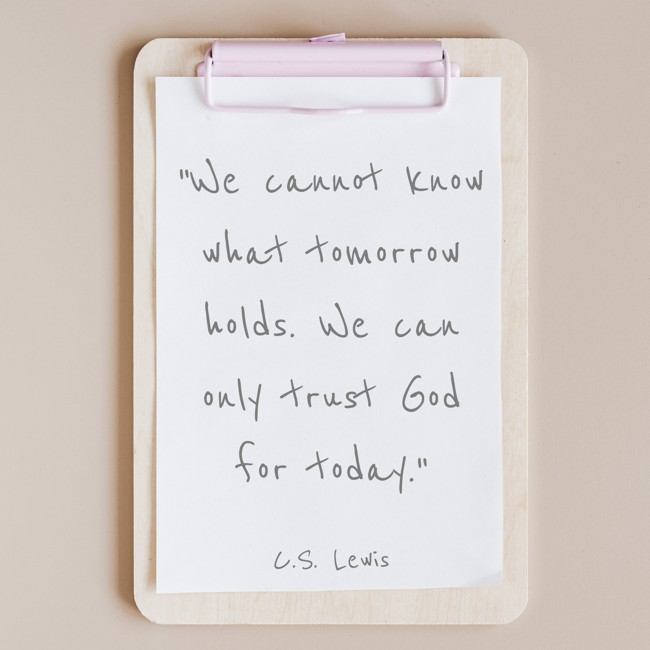 "We cannot know
what tomorrow
holds. We can
only trust God
for today."
C.S. Lewis